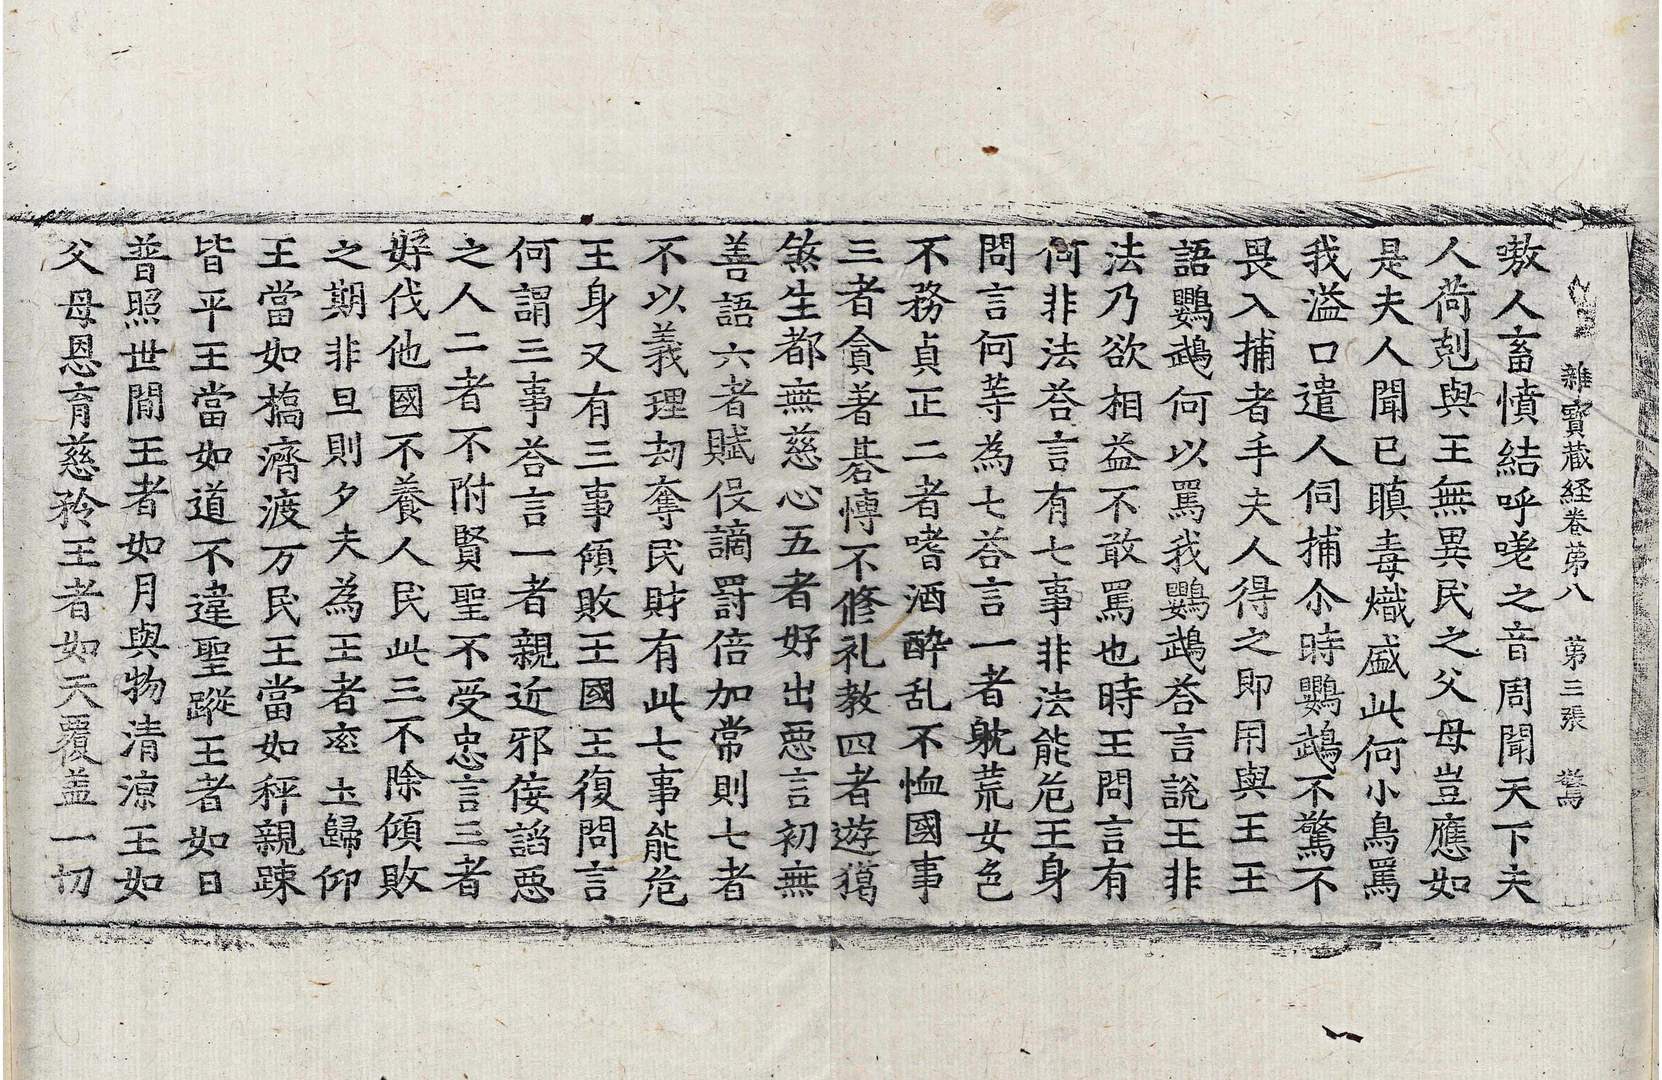 雜寶蔵経卷苐八　苐三張　驚
嗷人畜憤結呼嗟之音周聞天下夫
人荷剋與王無異民之父母豈應如
是夫人聞已瞋毒熾盛此何小鳥罵
我溢口遣人伺捕尒時鸚鵡不驚不
畏入捕者手夫人得之即用與王王
語鸚鵡何以罵我鸚鵡荅言說王非
法乃欲相益不敢罵也時王問言有
何非法荅言有七事非法能危王身
問言何䓁為七荅言一者躭荒女色
不務貞正二者嗜酒酔乱不恤國事
三者貪著碁愽不修礼教四者遊獵
煞生都無慈心五者好出惡言初無
善語六者賦役謫罰倍加常則七者
不以義理刧奪民財有此七事能危
王身又有三事傾敗王國王復問言
何謂三事荅言一者親近邪佞諂惡
之人二者不附賢聖不受忠言三者
好伐他國不養人民此三不除傾敗
之期非旦則夕夫為王者率土歸仰
王當如橋濟渡万民王當如秤親踈
皆平王當如道不違聖蹤王者如日
普照世間王者如月與物清凉王如
父母恩育慈矜王者如天覆盖一切